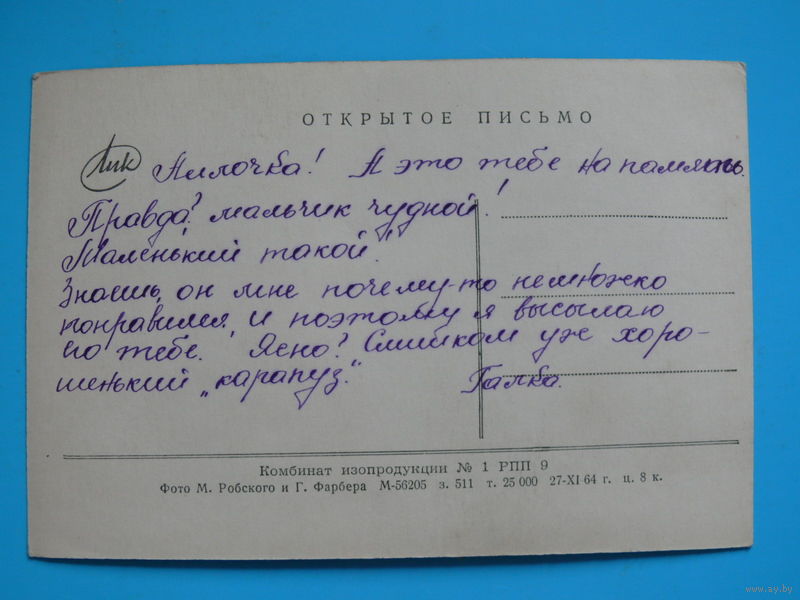 ОТКРЫТОЕ ПИСЬМО
Лилочка! А это тебе на память.
Правда? мальчик чудной!
Маленький такой".
Знаешь, он мне почему-то немножко
понравился, и поэтому я высылаю
его тебе. Ясно? Слишком уж хоро-
шенький „карапуз". Галка.
Комбинат изопродукции № 1 РПП 9
Фото М. Робского и Г. Фарбера М-56205 з. 511 т. 25 000 27-XI-64 г. ц. 8 к.
www.ay.by